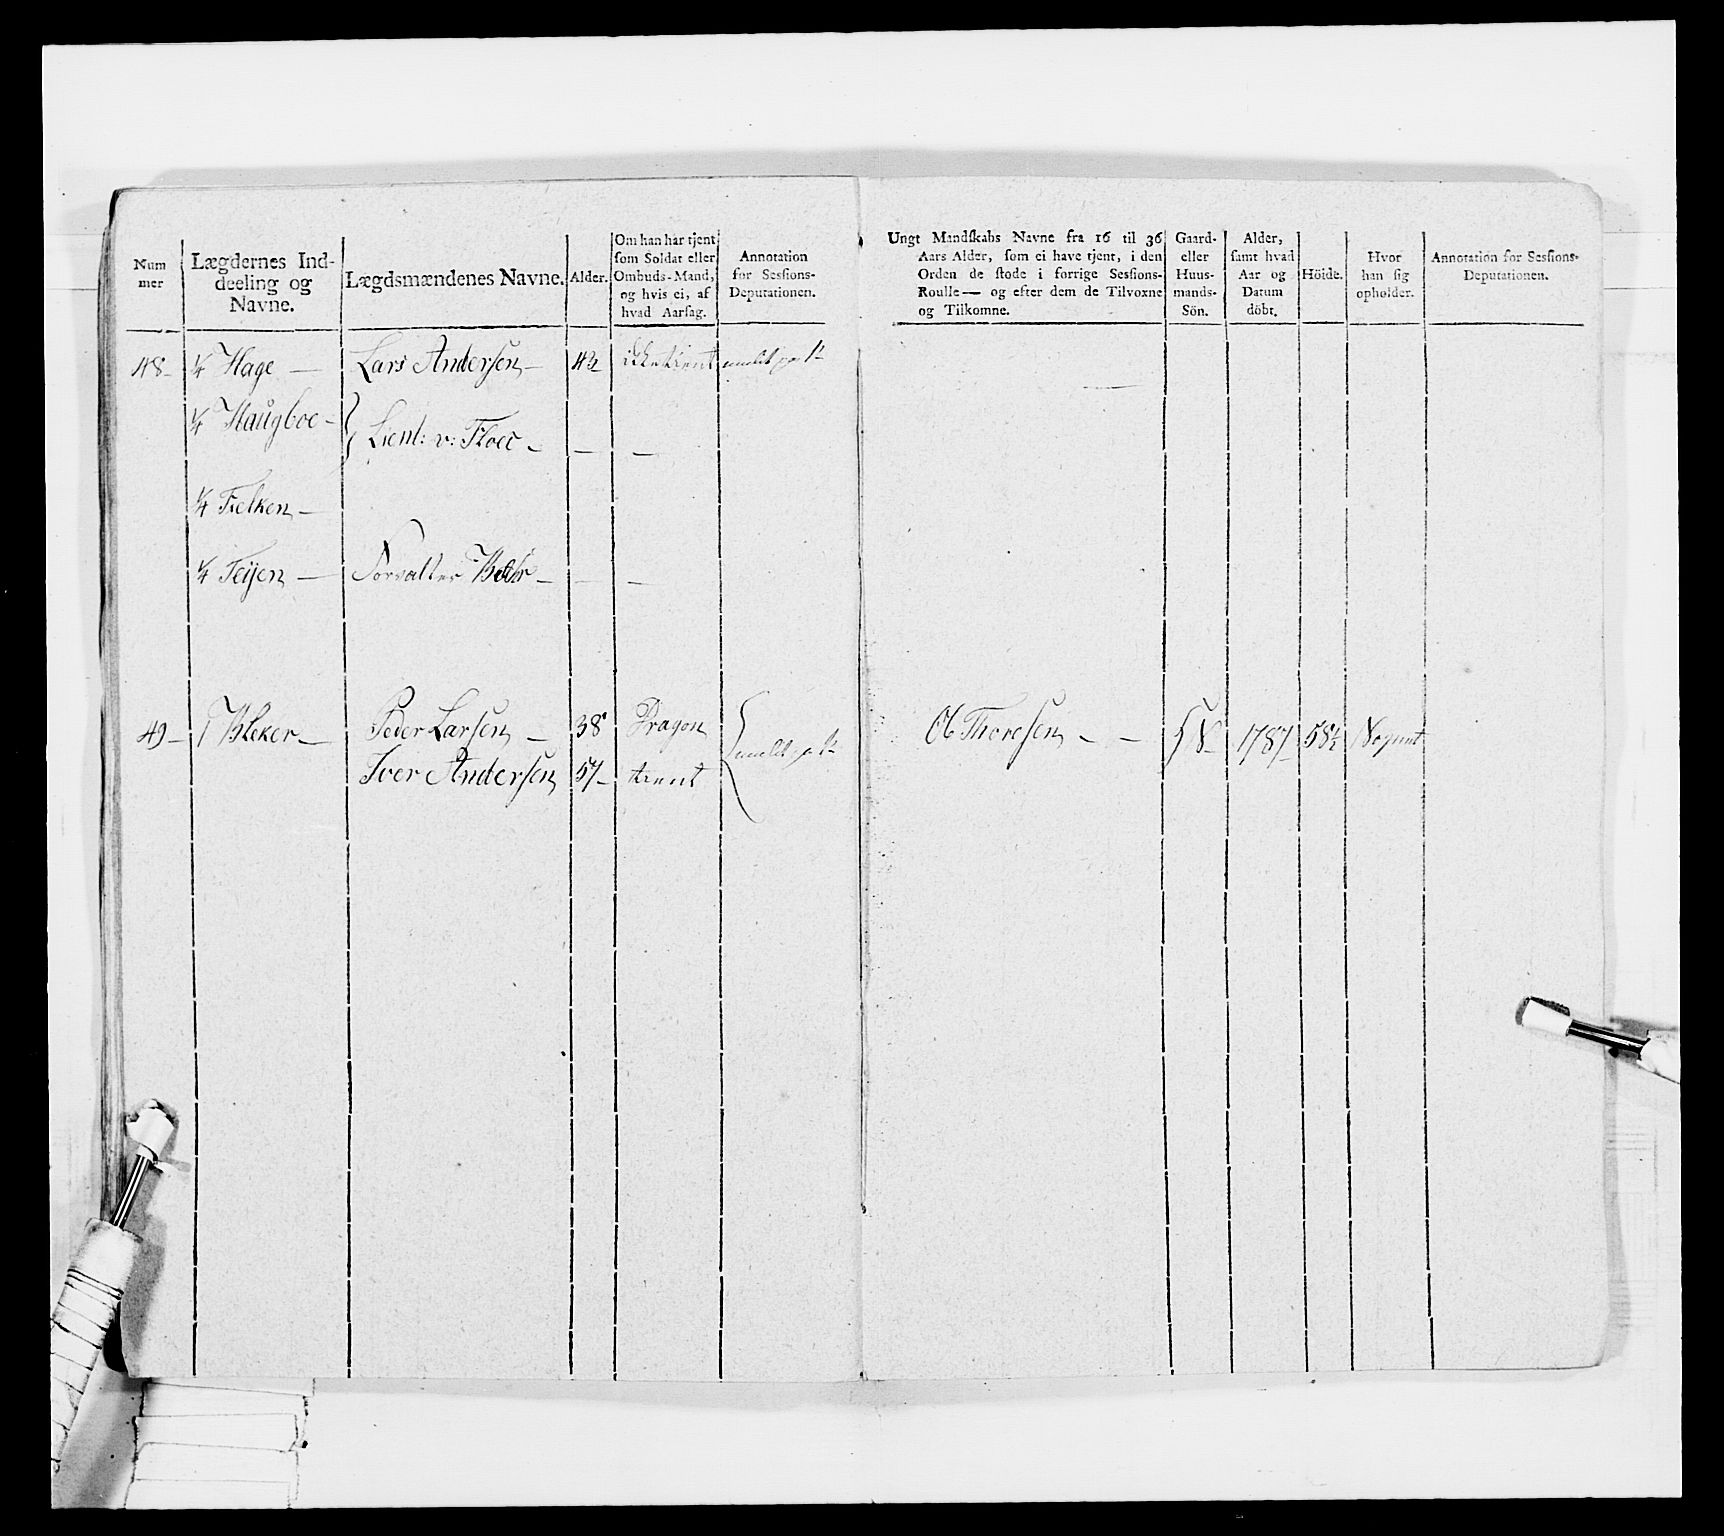 Num
mer
Lægdernes Ind-
deeling og
Navne.
Lægdsmændenes Navne.
Alder.
Om han har tjent
som Soldat eller
Ombuds-Mand,
og hvis ei, af
hvad Aarsag.
Annotation
for Sessions-
Deputationen.
Ungt Mandskabs Navne fra 16 til 36
Aars Alder, som ei have tjent, i den
Orden de stode i forrige Sessions-
Roulle — og efter dem de Tilvoxne
og Tilkomne.
Gaard-
eller
Huus-
mands-
Sön.
Alder,
samt hvad
Aar og
Datum
döbt.
Höide.
Hvor
han sig
opholder.
Annotation for Sessions-
Deputationen.
48 – ¼ Hage — Lars Andersen – ikke tient
¼ Haugboe –
Lieut: v: –
¼ –
¼ Teijen — Forvalter –
49 – 1 Bleker – Peder Larsen – 38 Dragon
Iver Andersen 57 – tient
Ole Thoresen – – 1787